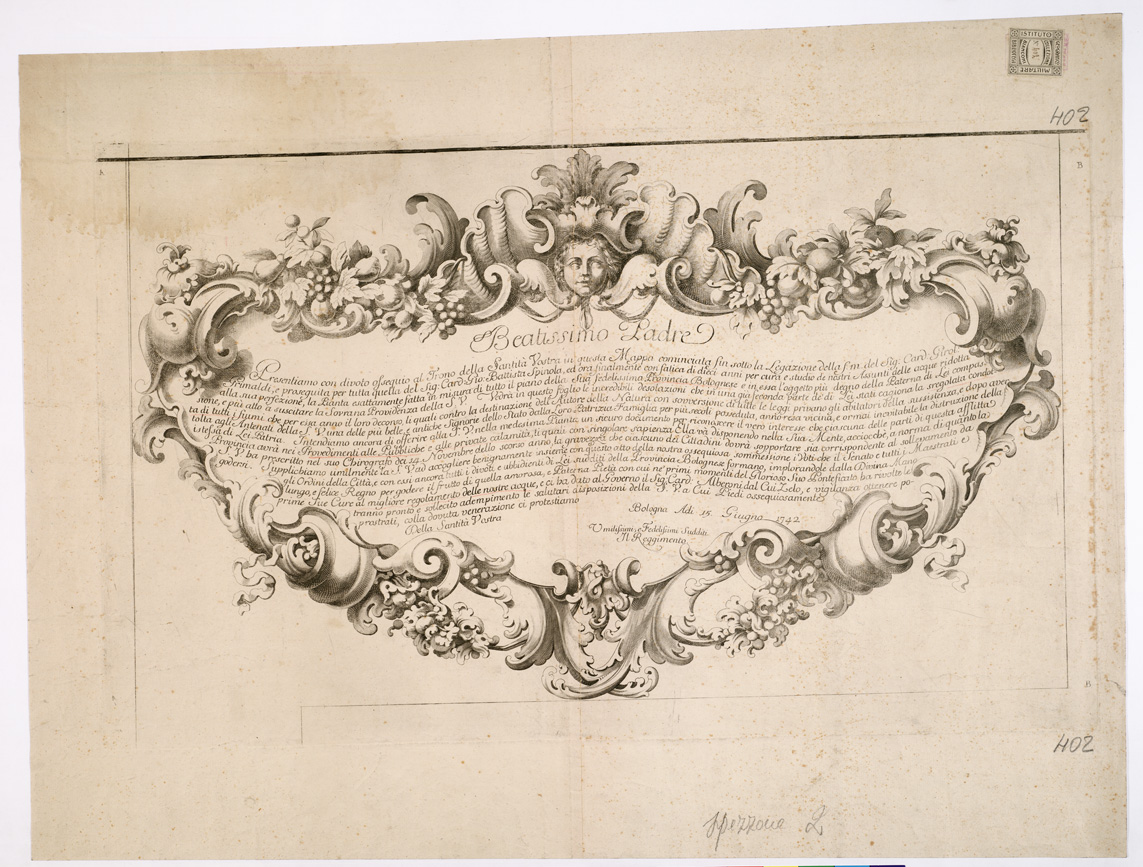 ISTITUTO
MILITARE
402
A
B
Beatissimo Padre
Presentiamo con divoto ossequio al Trono della Santità Vostra in questa Mappa cominciata fin sotto la Legazione della f: m: del Sig: Card: Girol:
Grimaldi, e proseguita per tutta quella del Sig: Card: Gio: Battista Spinola, ed ora finalmente con fatica di dieci anni per cura e studio de nostri Assunti delle acque ridotta
alla sua perfezione, la Pianta esattamente fatta in misura di tutto il piano della Sua fedelissima Provincia Bolognese e in essa l'oggetto più degno della Paterna di Lei compas-
sione, e più atto a suscitare la Sovrana Providenza della S. V. Vedrà in queste foglio le incredibili desolazioni che in una gia feconda parte de di Lei stati cagiona la sregolata condot-
ta di tutti i fiumi, che per essa anno il loro decorso, li quali contro la destinazione dell'Autore della Natura con sovversione di tutte le leggi privano gli abitatori della sussistenza, e dopo aver
tolta agli Antenati della S. V. una delle più belle, e antiche Signorie dello Stato dalla Loro Patrizia Famiglia per più secoli posseduta, anno resa vicina, e ormai inevitabile la distruzione della
istessa di Lei Patria. Intendiamo ancora di offerire alla S. V. nella medesima Pianta, un sincero documento per riconoscere il vero interesse che ciascuna delle parti di questa afflitta
Provincia avrà nei Provedimenti alle Pubbliche e alle private calamità, li quali con singolare sapienza Ella và disponendo nella Sua Mente, acciocchè, a norma di quanto la
S. V. ha prescritto nel suo Chirografo dei 24 Novembre dello scorso anno, la gravezza che ciascuno dei Cittadini dovrà sopportare sia corrispondente al sollevamento da
godersi. Supplichiamo umilmente la S. V. ad accogliere benignamente insieme con questo atto della nostra ossequiosa sommessione i Voti che il Senato e tutti i Maestrati, e
gli Ordini della Città, e con essi ancora tutti i divoti, e ubbidienti di Lei sudditi della Provincia Bolognese formano, implorandole dalla Divina Mano
lungo, e felice Regno per godere il frutto di quella amorosa, e Paterna Pietà con cui ne' primi momenti del Glorioso Suo Pontificato ha rivolto le
prime Sue Cure al migliore regolamento delle nostre acque, e ci ha dato al Governo il Sig: Card: Alberoni dal Cui Zelo, e vigilanza ottenere po-
tranno pronto e sollecito adempimento le salutari disposizioni della S. V. a Cui Piedi ossequiosamente
prostrati, colla dovuta venerazione ci protestiamo
Della Santità Vostra
Bologna Adi 15. Giugno 1742
Umilissimi, e Fedelissimi Sudditi
Il Reggimento
B
402
spezzone 2